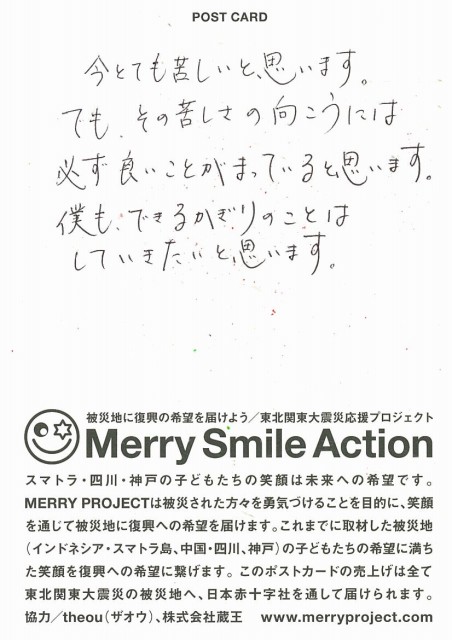 POST CARD
今とても苦しいと、思います。
でも、その苦しさの向こうには
必ず良いことがまっていると思います。
僕も、できるかぎりのことは
していきたいと、思います。
被災地に復興の希望を届けよう/東北関東大震災応援プロジェクト
Merry Smile Action
スマトラ・四川・神戸の子どもたちの笑顔は未来への希望です。
MERRY PROJECTは被災された方々を勇気づけることを目的に、笑顔
を通じて被災地に復興への希望を届けます。これまでに取材した被災地
(インドネシア・スマトラ島、中国・四川、神戸)の子どもたちの希望に満ち
た笑顔を復興への希望に繋げます。このポストカードの売上げは全て
東北関東大震災の被災地へ、日本赤十字社を通して届けられます。
協力/theou(ザオウ)、株式会社蔵王 www.merryproject.com